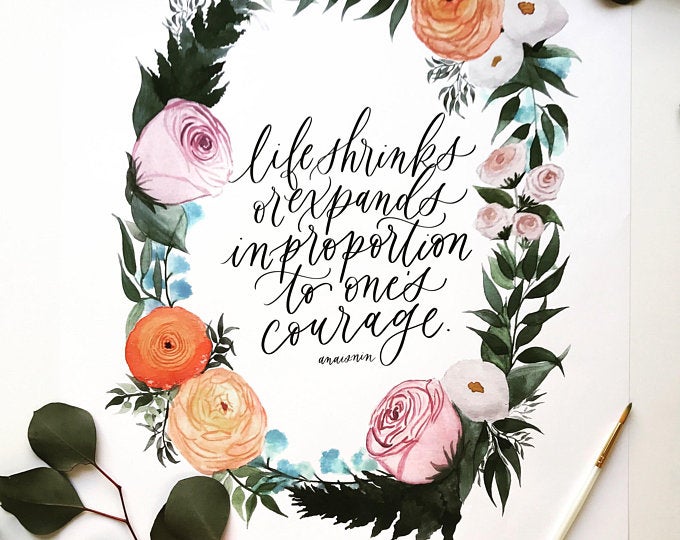 life shrinks
or expands
in proportion
to one's
courage.
anais nin